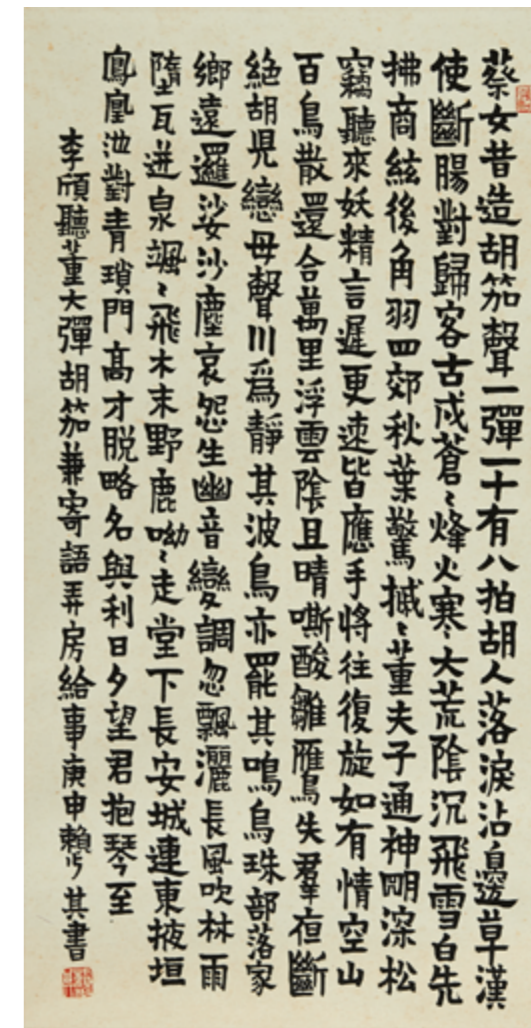 蔡女昔造胡笳聲一彈一十有八拍胡人落淚沾邊草漢
使斷腸對歸客古戍蒼〻烽火寒大荒陰沉飛雪白先
拂商絃後角羽四郊秋葉驚摵〻董夫子通神明深松
竊聽來妖精言遲更速皆應手將往復旋如有情空山
百鳥散還合萬里浮雲陰且晴嘶酸雛雁失羣夜斷
絕胡児戀母聲川爲靜其波鳥亦罷其鳴烏珠部落家
鄉遠邏娑沙塵哀怨生幽音變調忽飄灑長風吹林雨
墮瓦迸泉颯〻飛木末野鹿呦〻走堂下長安城連東掖垣
鳳凰池對青瑣門高才脱略名與利日夕望君抱琴至
李頎聽董大彈胡笳兼寄語弄房給事庚申賴少其書